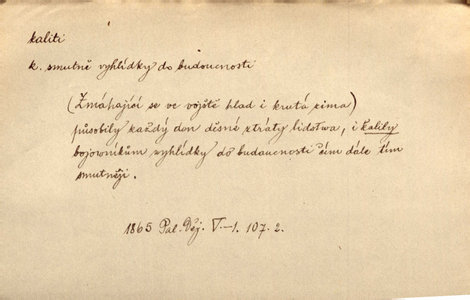 kaliti
k. smutně vyhlídky do budoucnosti
(Zmáhající se ve vojště hlad i krutá zima)
působily každý den děsné ztráty lidstwa, i kalily
bojowníkům vyhlídky do budaucnosti čím dále tím
smutněji.
1865 Pal. Děj. V.-1. 107. 2.